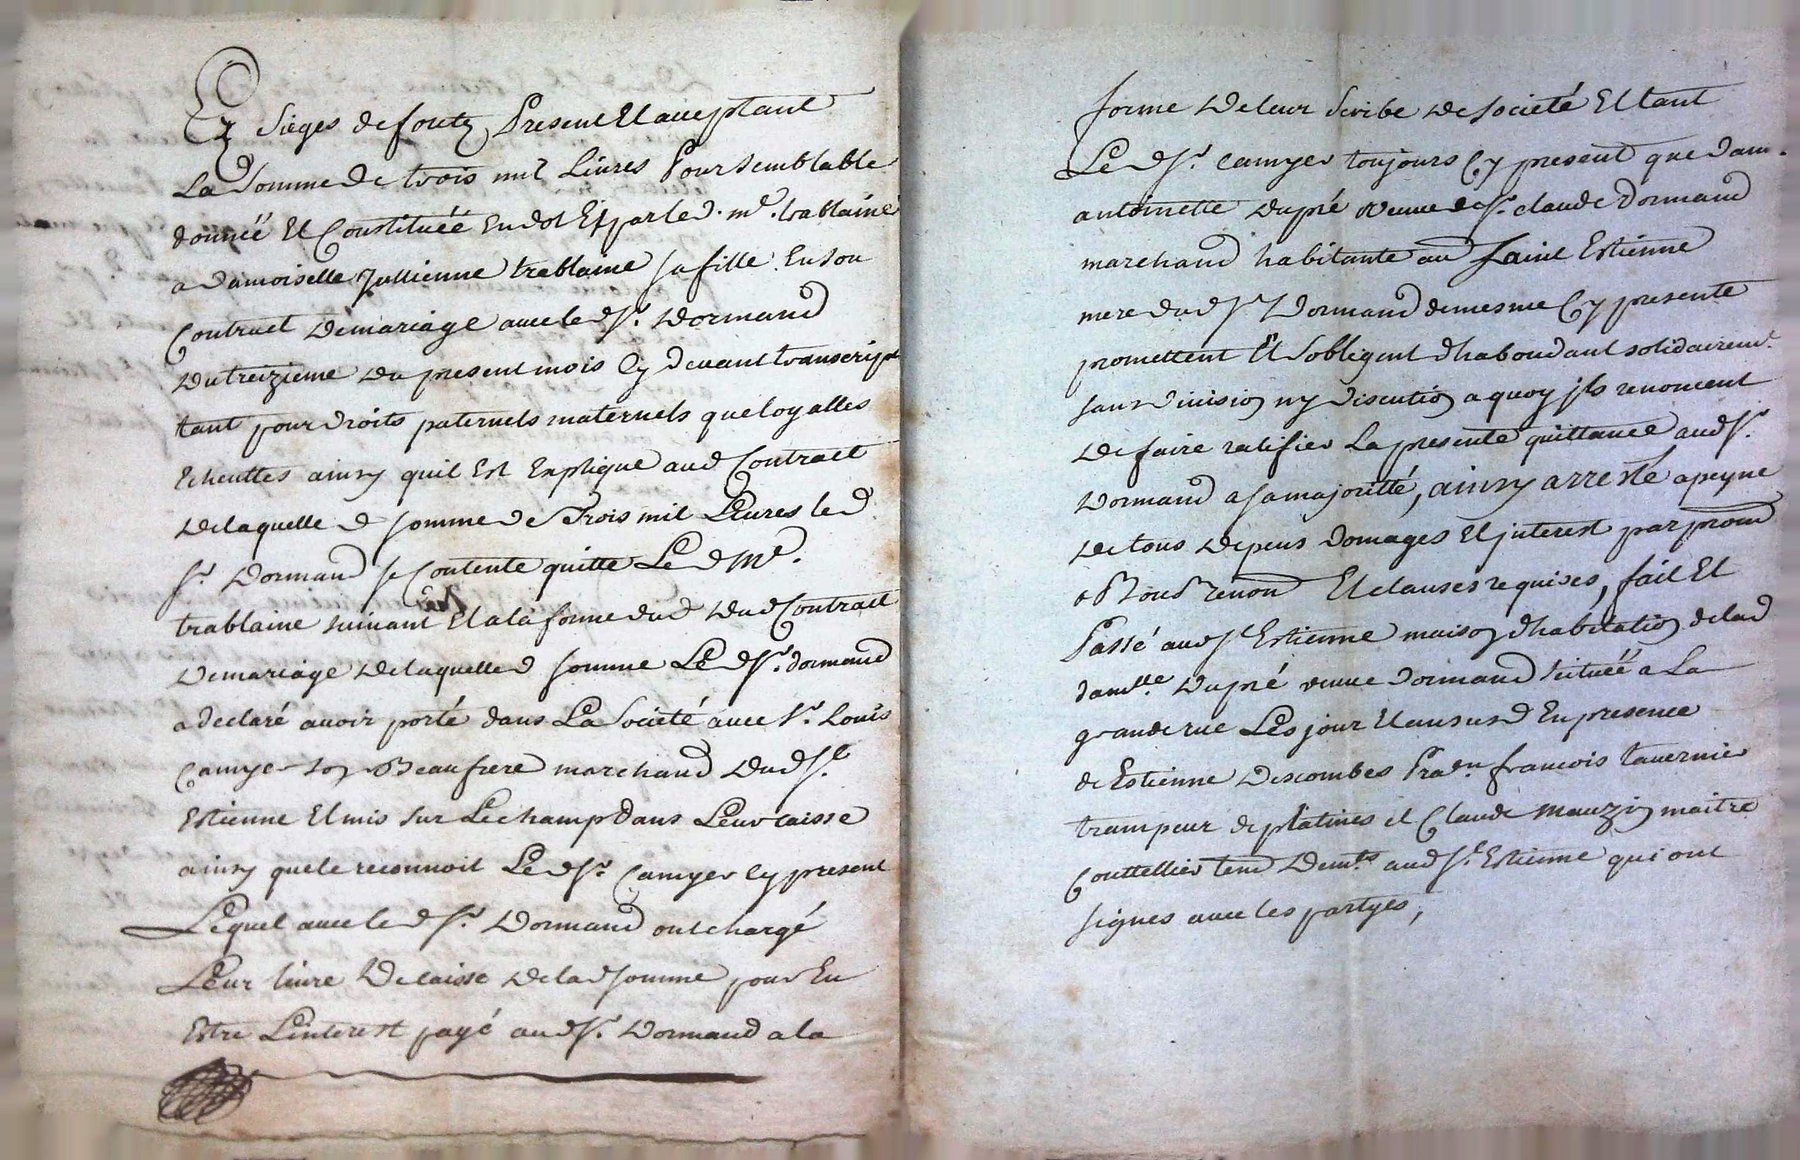 Ez sieges de foutz, Present Et acceptant
La somme de trois mil Livres Pour semblable
donnéé Et Constituéé En dot Et par led. me. trablaine
a damoiselle Jullienne trablaine sa fille En son
Contract de mariage avec le d sr. Dormand
du treizieme du present mois Cy devant transcript
tant pour droits paternels maternels que loyalles
Echeuttes ainsy quil Est Explique aud Contract
de laquelle d somme de Trois mil Livres le d
sr. Dormand se Contente quitte Le d Me.
trablaine suivant Et a la forme dud Contract
de mariage de laquelle d somme Le d sr. dormand
a declaré avoir porté dans La Societé avec sr. Louis
Camyer son Beaufrere marchand dud st.
Estienne Et mis sur Le champ dans Leur caisse
ainsy que le reconnoit Le d sr. Camyer Cy present
Lequel avec le d sr. Dormand ont chargé
Leur livre de caisse de lad somme pour En
Estre L'interest payé aud sr. Dormand a la
forme de leur scribe de societé Et tant
Le d sr. Camyer toujours Cy present que dam.
antoinette dupré veuve de sr. claude Dormand
marchand habitante aud saint Estienne
mere dud sr Dormand de mesme Cy presente
promettent Et sobligent d'habondant solidairemt.
sans division ny discution a quoy ils renoncent
de faire ratifier La presente quittance aud sr.
Dormand a sa majoritté, ainsy arresté a peyne
de tous depens domages Et interest par prom
obl soub renon Et clauses requises, fait Et
Passé aud st Estienne maison d'habitation de lad
damlle. dupré veuve dormand scituéé a La
grande rue Les jour Et an susd En presence
de Estienne Descombes Pradn. francois tavernier
trampeur de platines et Claude Mauzin maitre
Couttellier tend demts. aud st. Estienne qui ont
signes avec les partyes,